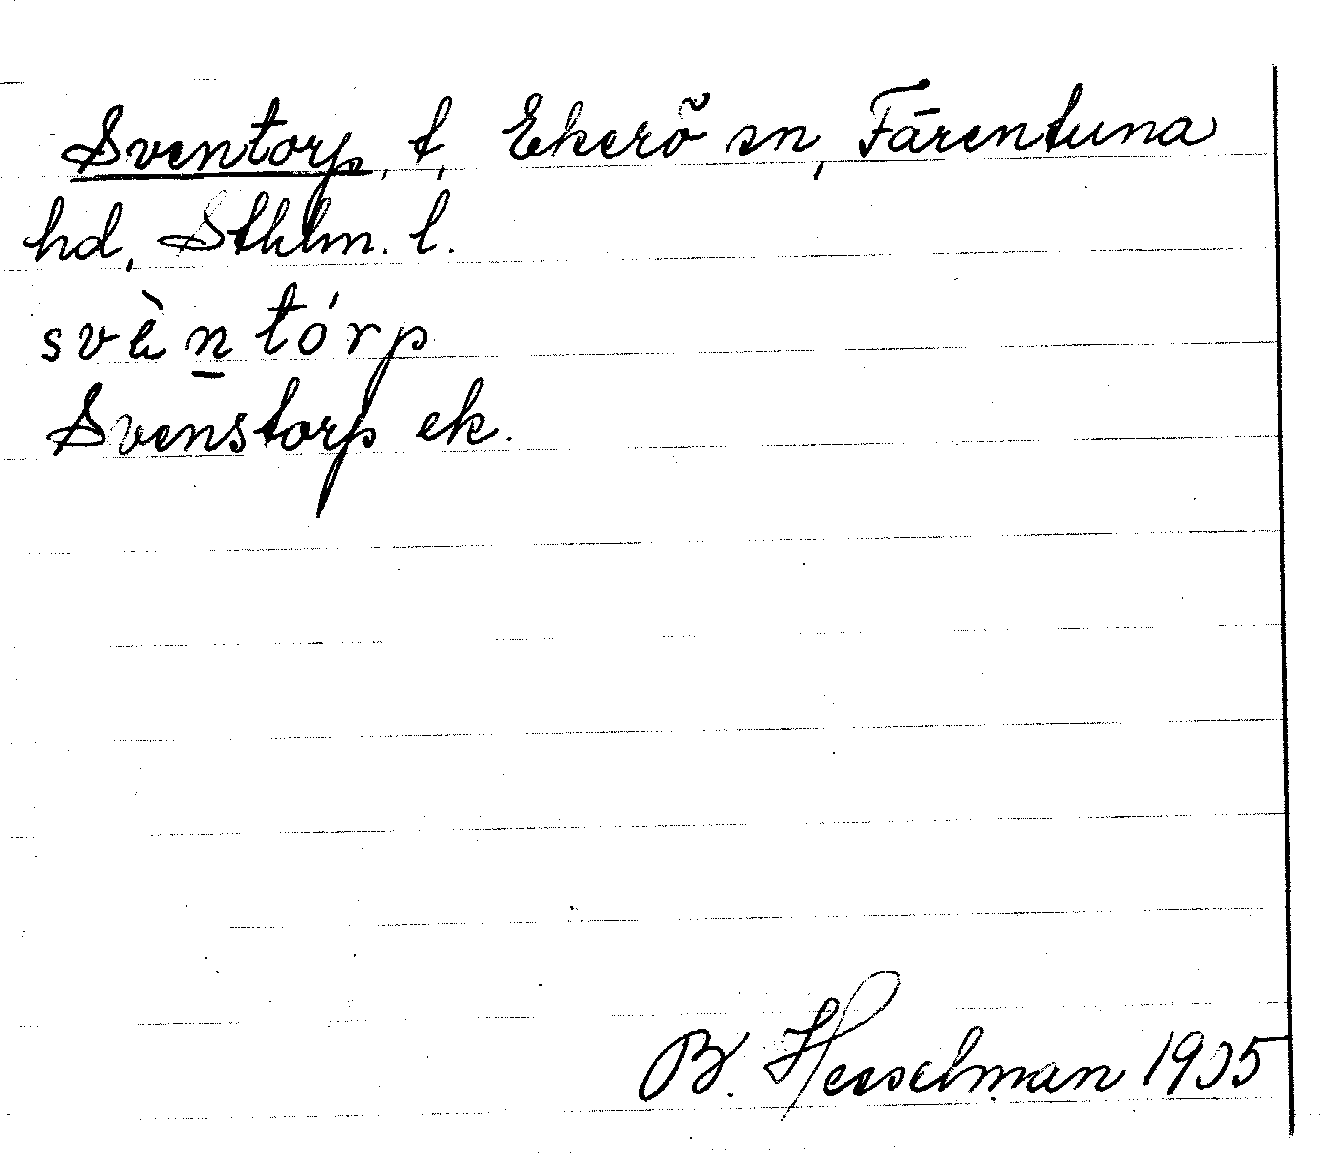 Sventorp, t, Ekerö sn, Färentuna
hd, Sthlm. l.
svèntórp
Svenstorp ek.
B. Hesselman 1935